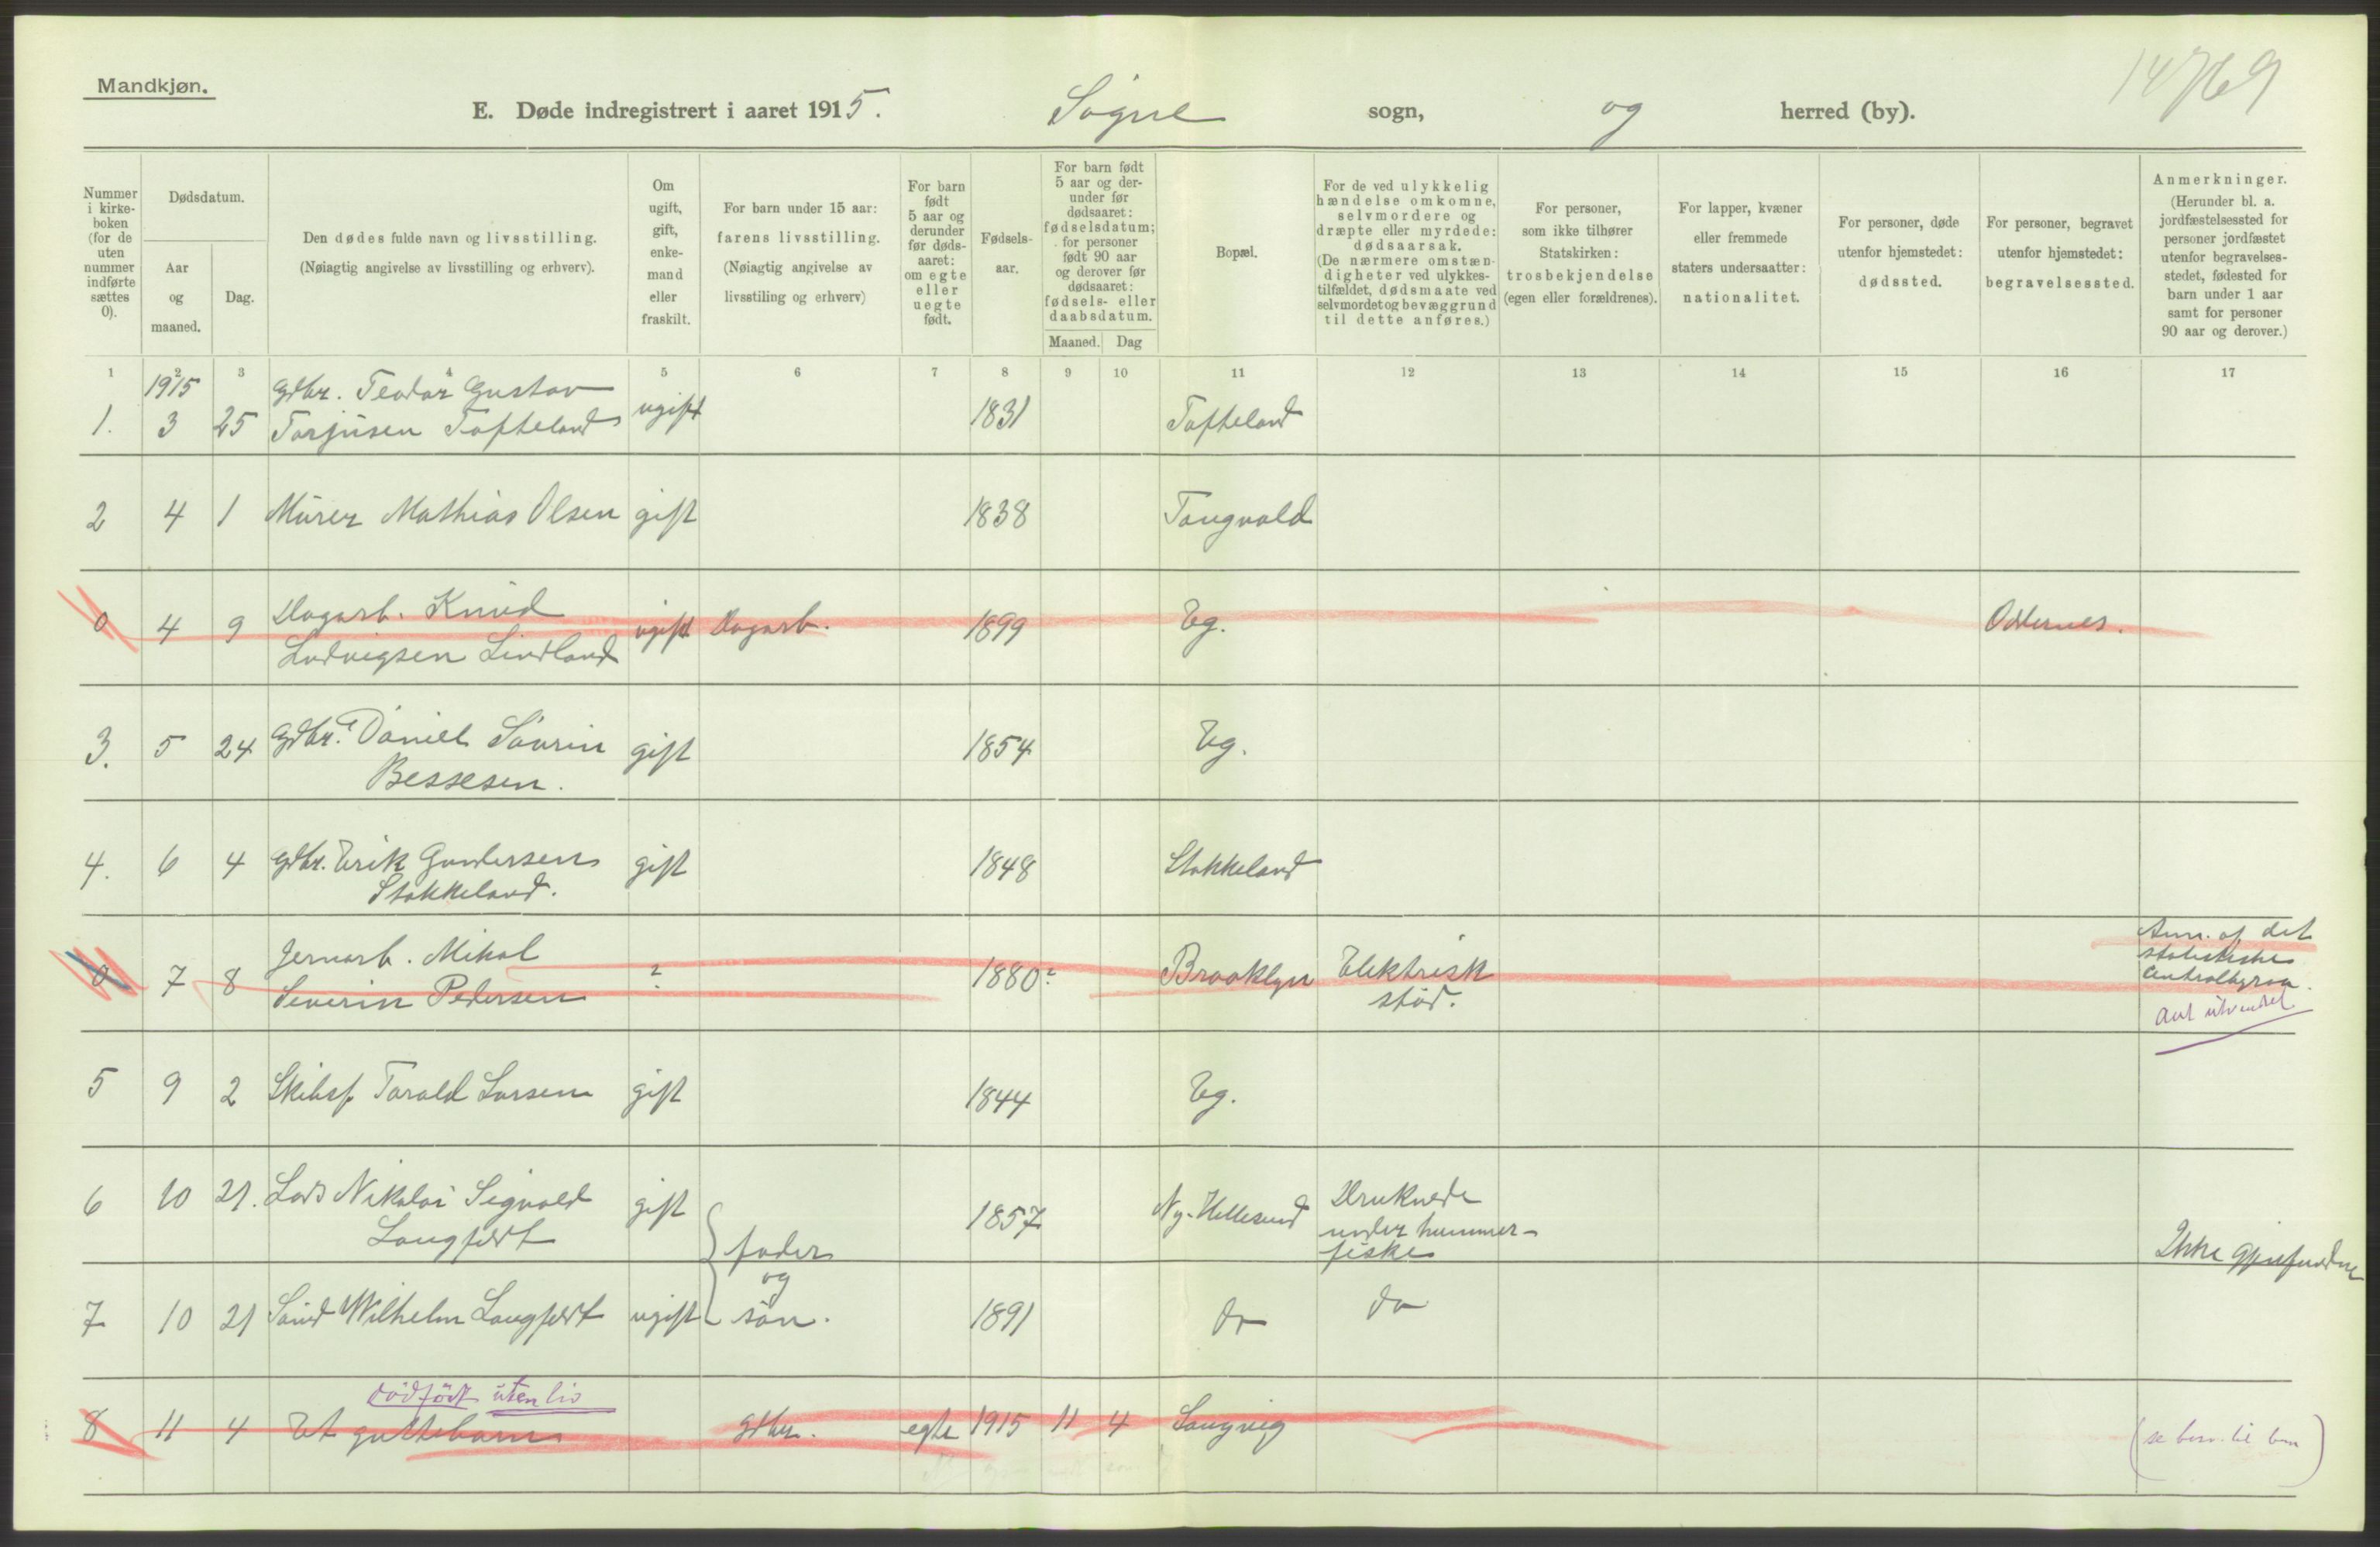 Mandkjøn.
14769
E. Døde indregistrert i aaret 1915. Søgne sogn, og herred (by).
Nummer i kirke-boken (for de uten nummer indførte sættes 0).
Dødsdatum.
Aar og maaned.
Dag.
Den dødes fulde navn og livsstilling.
(Nøiagtig angivelse av livsstilling og erhverv).
Om ugift, gift, enke-mand eller fraskilt.
For barn under 15 aar: farens livsstilling.
(Nøiagtig angivelse av livsstiling og erhverv)
For barn født 5 aar og derunder før døds-aaret: om egte eller uegte født.
Fødsels-aar.
For barn født 5 aar og der-under før dødsaaret: fødselsdatum; for personer født 90 aar og derover før dødsaaret: fødsels- eller daabsdatum.
Maaned. Dag
Bopæl.
For de ved ulykkelig hændelse omkomne, selvmordere og dræpte eller myrdede: dødsaarsak.
(De nærmere omstæn-digheter ved ulykkes-tilfældet, dødsmaate ved selvmordet og bevæggrund til dette anføres.)
For personer, som ikke tilhører Statskirken: trosbekjendelse (egen eller forældrenes).
For lapper, kvæner eller fremmede staters undersaatter: nationalitet.
For personer, døde utenfor hjemstedet: dødssted.
For personer, begravet utenfor hjemstedet: begravelsessted.
Anmerkninger.
(Herunder bl. a. jordfæstelsessted for personer jordfæstet utenfor begravelses-stedet, fødested for barn under 1 aar samt for personer 90 aar og derover.)
1 2 3 4 5 6 7 8 9 10 11 12 13 14 15 16 17
1915 Gdbr. Teodor Gustav
1. 3 25 Torjusen Tofteland ugift 1831 Tofteland
2 4 1 Murer Mathias Olsen gift 1838 Tangvald
0 4 9 Dagarb. Knud ugift Dagarb. 1899 Eg. Oddernes.
Ludvigsen Lindland
3. 5 24 Gdbr. Daniel Søvrin gift 1854 Eg.
Bessesen.
4. 6 4 Gdbr. Erik Gundersen gift 1848 Stokkeland
Stokkeland.
0 7 8 Jernarb. Mikal ? 1880? Brooklyn Elektrisk Anm. af det
Severin Pedersen stød. statistiske
Centralbyraa.
ant utvandret
5 9 2 Skibsf. Tarald Larsen gift 1844 Eg.
6 10 21. Lods Nikolai Sigvald gift 1857 Ny-Hellesund Druknede
Langfeldt under hummer-
fiske
fader
og
søn.
Ikke gjenfundne
7 10 21 Wilhelm Langfeldt ugift 1891 do do
dödfödt uten liv
8 11 4 Et guttebarn gdbr. egte 1915 11 4 Langvig (se til